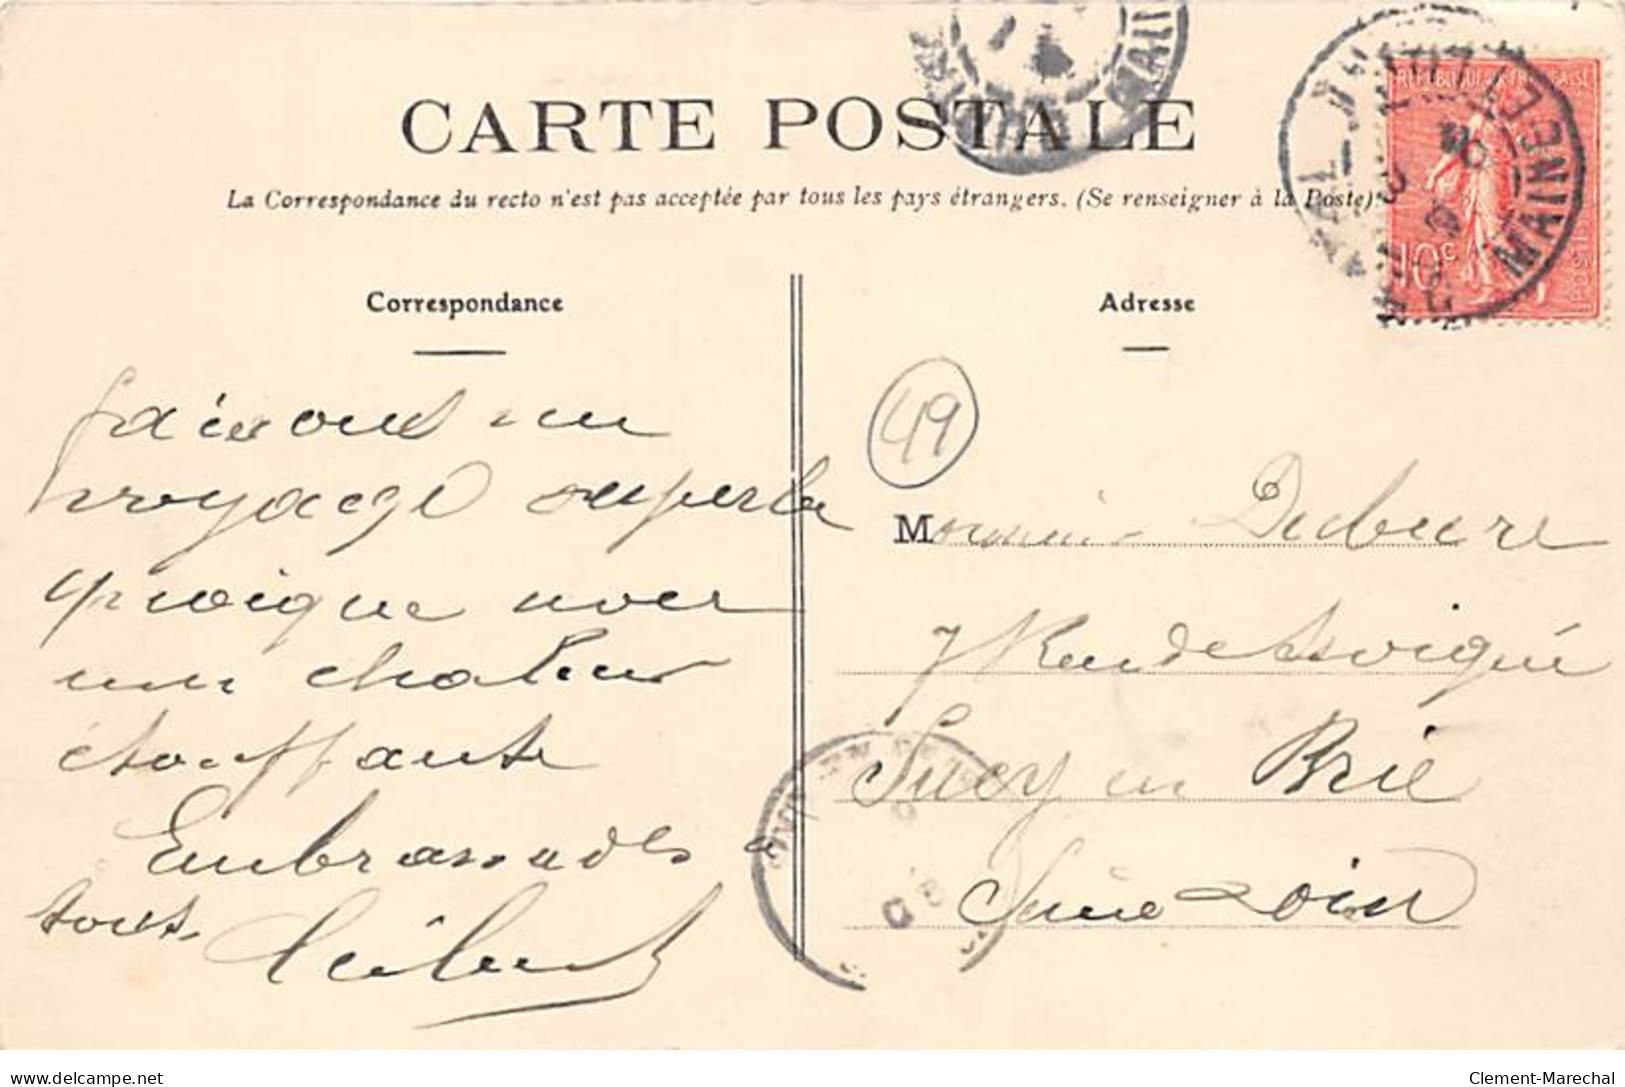 CARTE POSTALE
La Correspondance du recto n'est pas acceptée par tous les pays étrangers. (Se renseigner à la Poste)
RÉPUBLIQUE FRANÇAISE
10c
POSTES
MAINE
Correspondance
Adresse
faisons un
voyage superbe
quoique avec
une chaleur
étouffante
Embrassades à
tous
49
Monsieur Dubure
7 Rue de Sévigné
Sucy en Brie
Seine & Oise
delcampe.net
Clement-Marechal